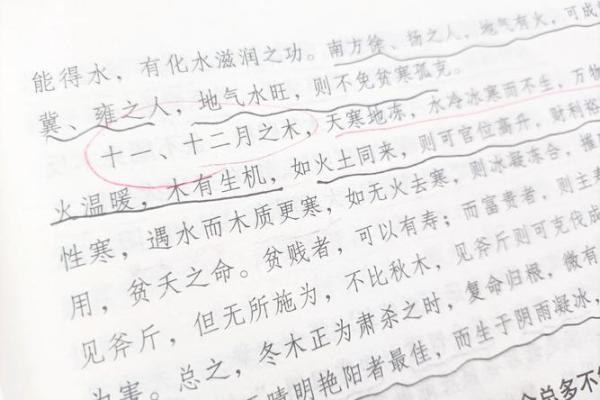 能得水，有化水滋润之功。南方徐、扬之人，地气有火，可成
冀、雍之人，地气水旺，则不免贫寒孤克。
十一、十二月之木，天寒地冻，水冷冰寒而不生，万物
火温暖，木有生机，如火土同来，则可官位高升，财利
性寒，遇水而木质更寒，如无火去寒，则冰凝冻合，摧
用，贫夭之命。贫贱者，可以有寿；而富贵者，则主寿
见斧斤，但无所施为，不比秋木，见斧斤则可克伐成
为害。总之，冬木正为肃杀之时，复命归根，微有
晴明艳阳者最佳，而生于阴雨凝冰，
总多不